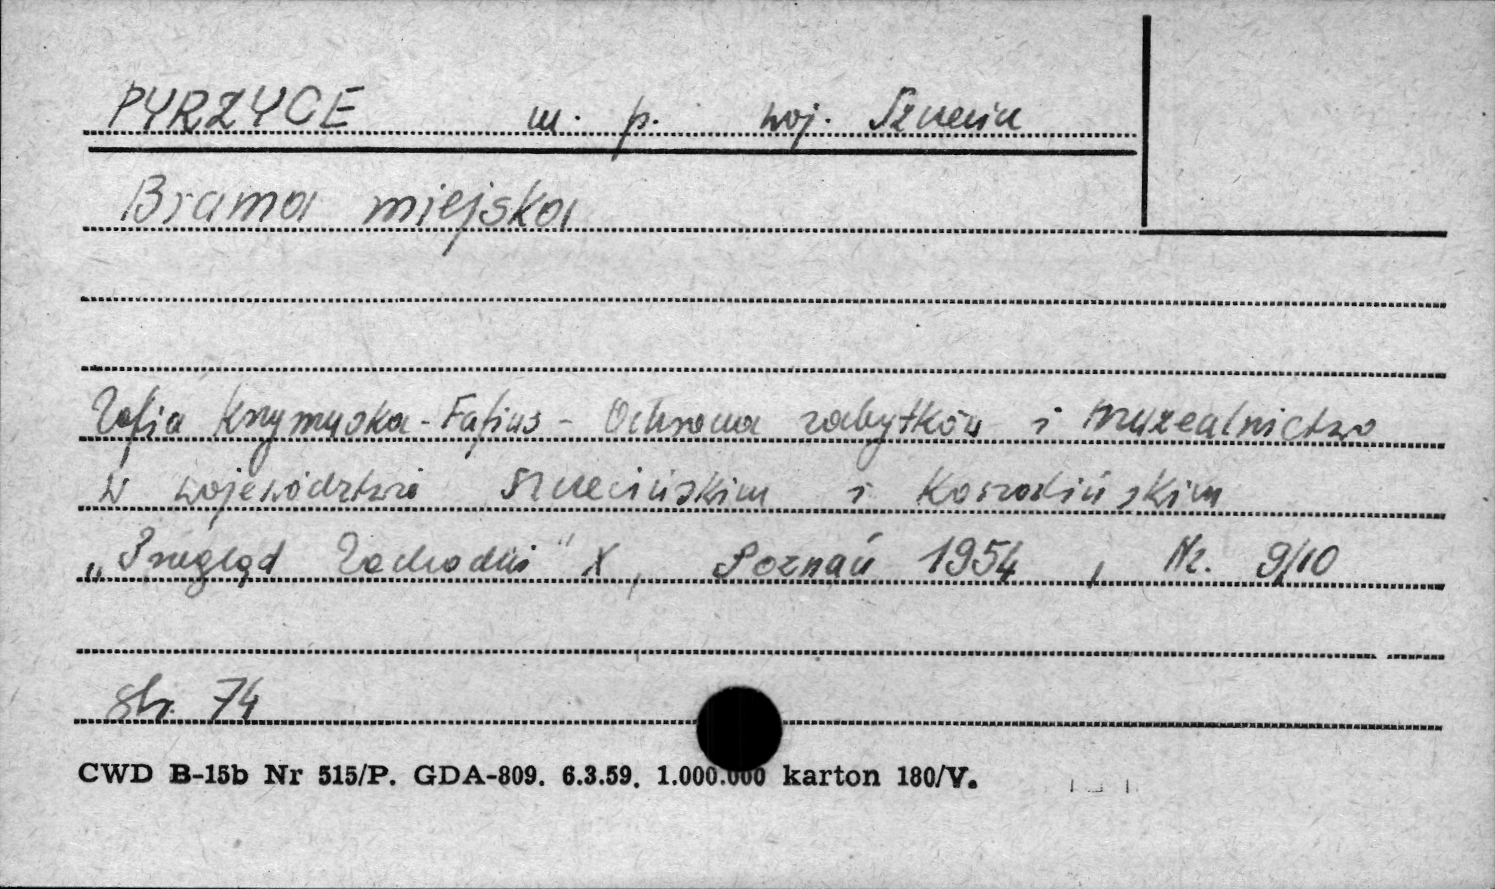 PYRZYCE m. p. woj. Szczecin
Brama miejska
Zofia Krzymuska-Fafius - Ochrona zabytków i muzealnictwo
w województwie szczecińskim i koszalińskim
„Przegląd Zachodni" X, Poznań 1954, Nr. 9/10
str. 74
CWD B-15b Nr 515/P. GDA-809. 6.3.59. 1.000.000 karton 180/V.